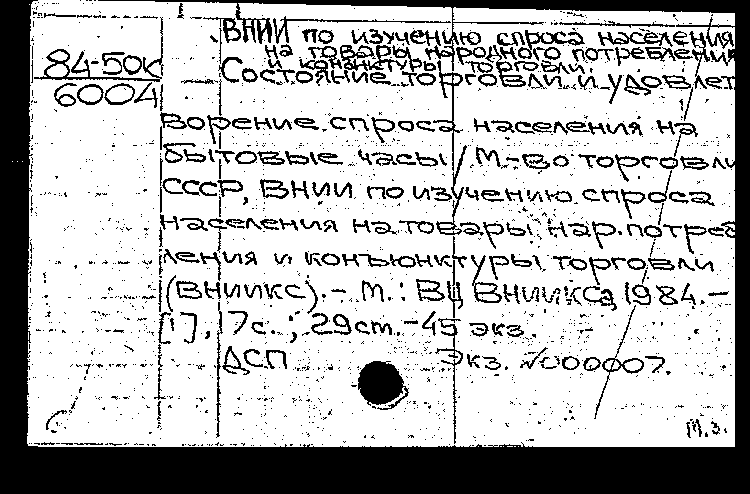 ВНИИ по изучению спроса населения
на товары народного потребления
и конъюнктуры торговли.
84-50к
6004
Состояние торговли и удовлет
ворение спроса населения на
бытовые часы / М.-во торговли
СССР, ВНИИ по изучению спроса
населения на товары нар. потреб
ления и конъюнктуры торговли
(ВНИИКС). - М.: ВЦ ВНИИКСа, 1984. -
[1], 17с.; 29см. - 45 экз.
ДСП Экз. №000007.
М.З.